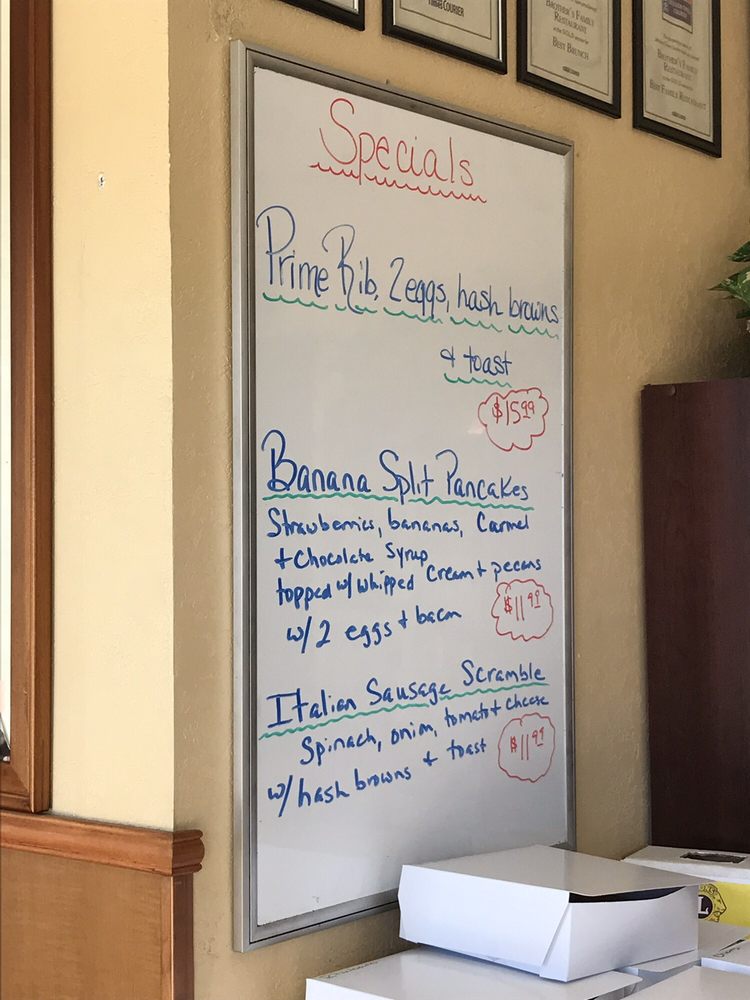 Times COURIER
BROTHER'S FAMILY
RESTAURANT
BEST BRUNCH
BROTHER'S FAMILY
RESTAURANT
BEST FAMILY RESTAURANT
Specials
Prime Rib, 2 eggs, hash browns
& toast
$15.99
Banana Split Pancakes
Strawberries, bananas, Carmel
+ Chocolate Syrup
topped w/ whipped Cream + pecans
w/ 2 eggs + bacon
$11.99
Italian Sausage Scramble
Spinach, onion, tomato + cheese
w/ hash browns + toast
$11.99
L